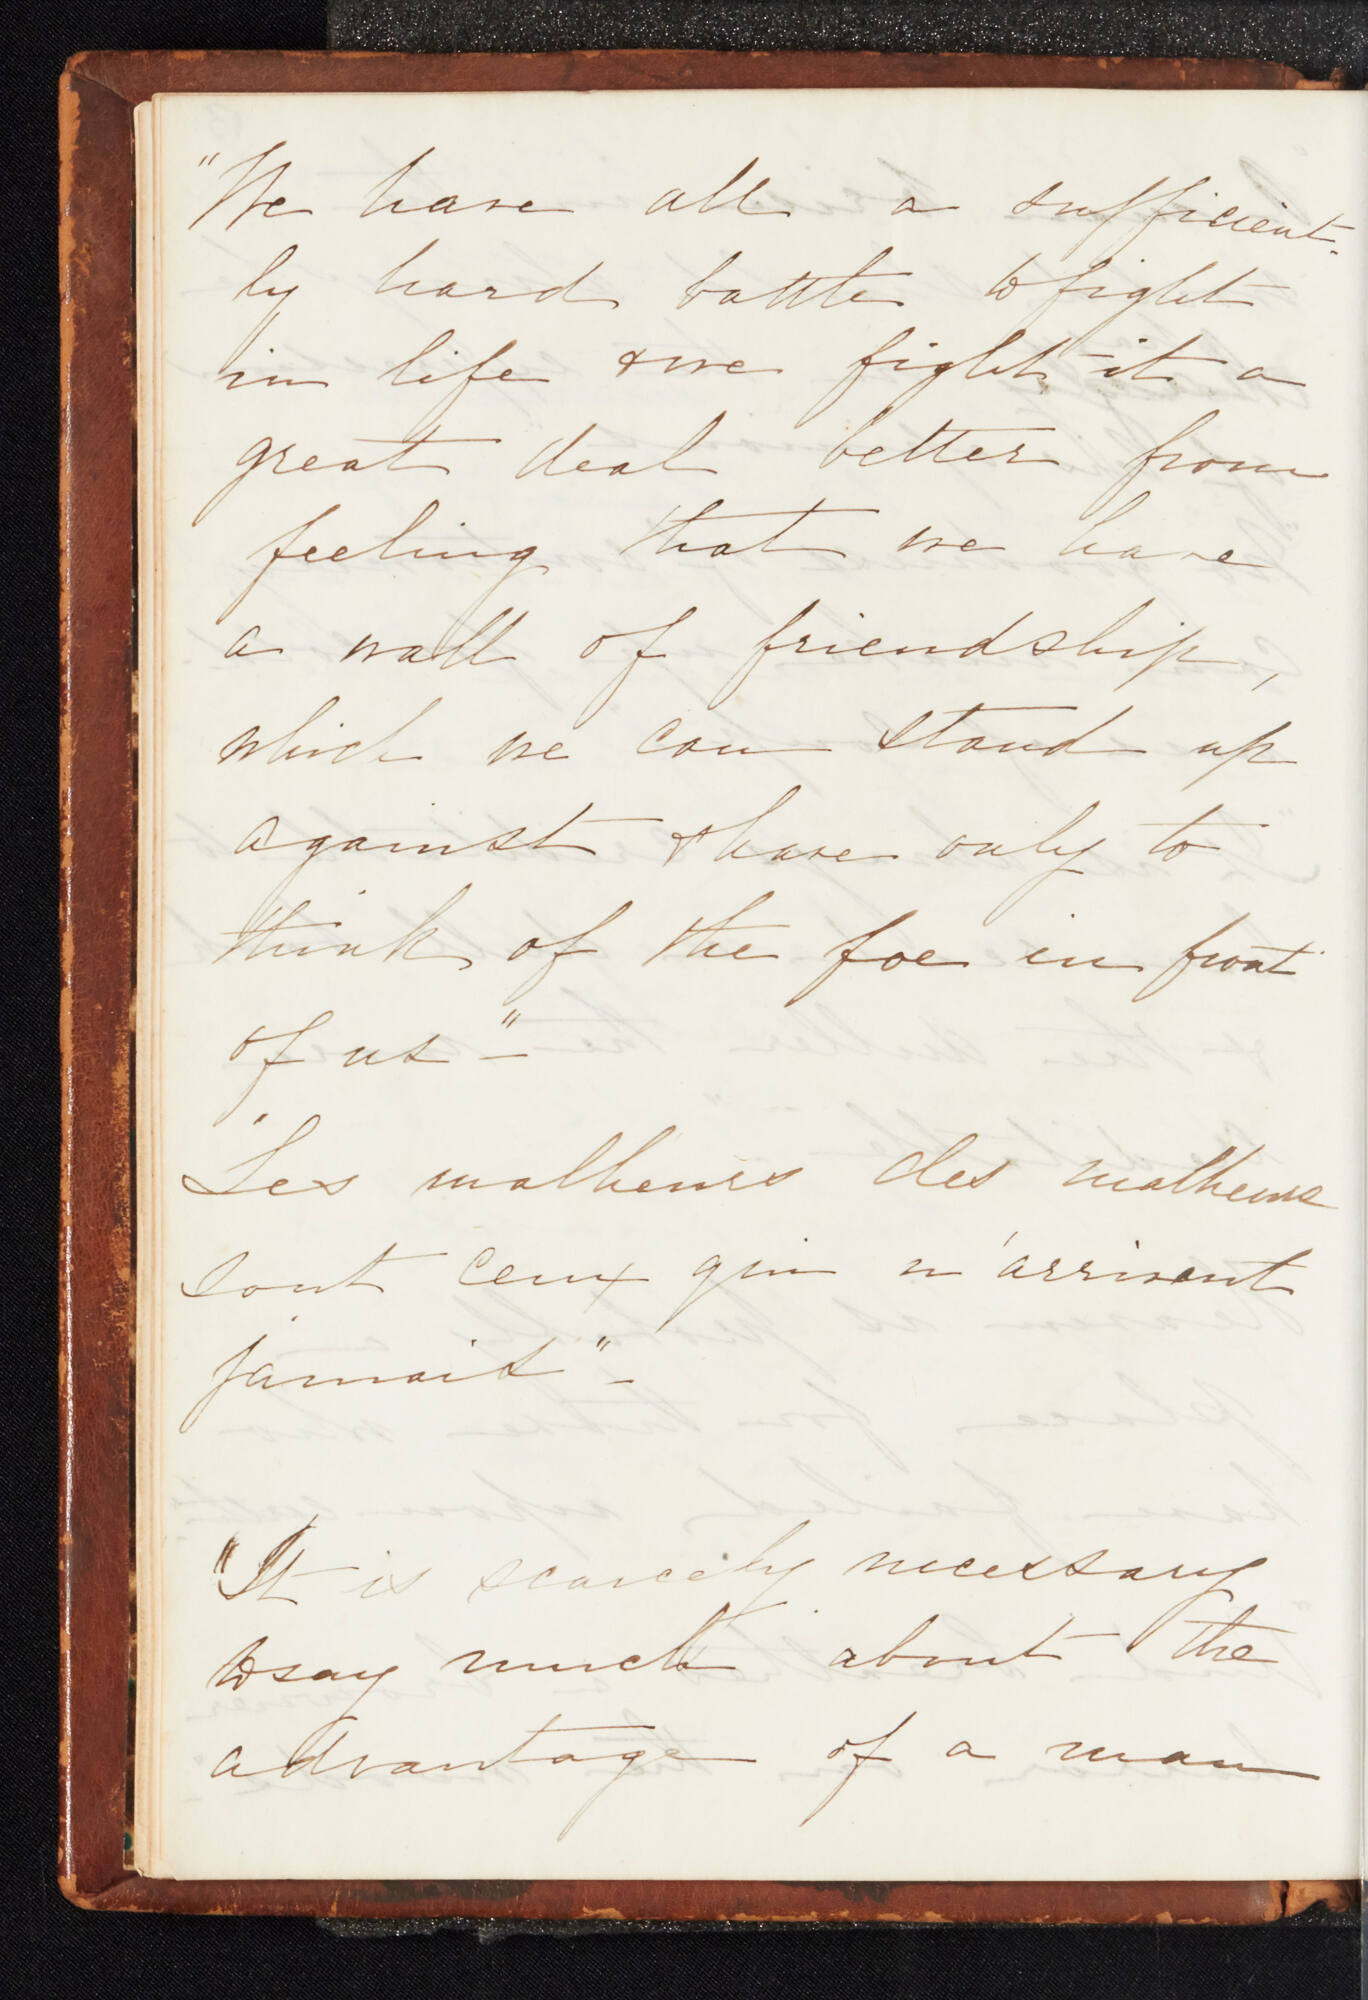 "We have all a sufficient-
ly hard battle to fight
in life & we fight it a
great deal better from
feeling that we have
a wall of friendship,
which we can stand up
against & have only to
think of the foe in front
of us" -
"Les malheurs des malheurs
sont ceux qui n'arrivent
jamais" -
"It is scarcely necessary
to say much about the
advantage of a man